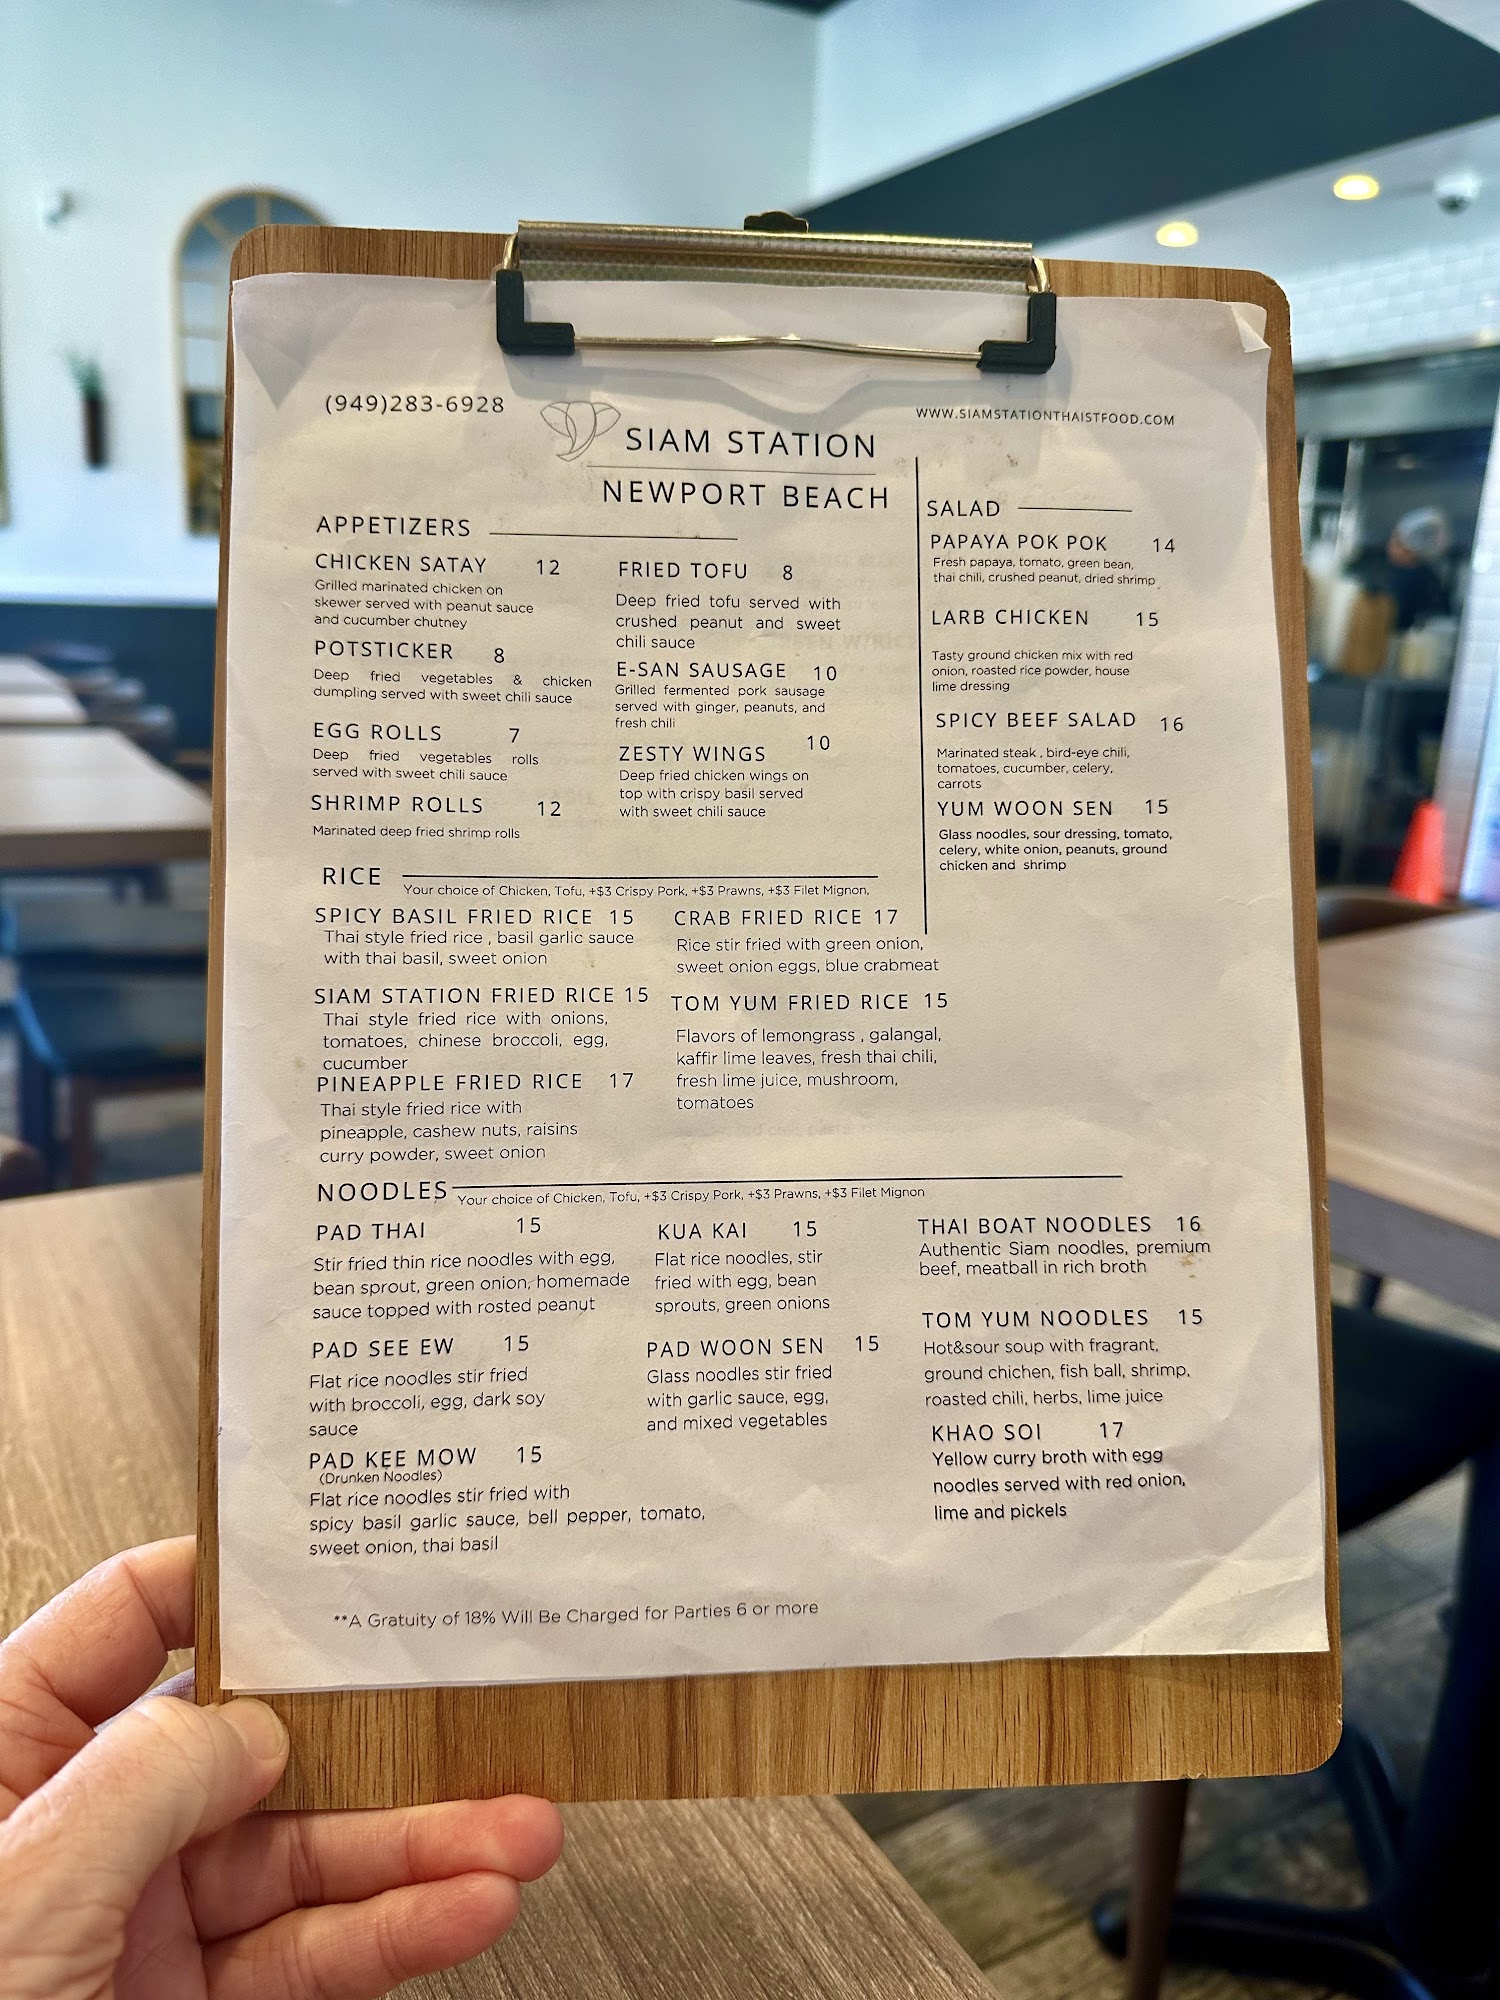 (949)283-6928
WWW.SIAMSTATIONTHAISTFOOD.COM
SIAM STATION
NEWPORT BEACH
APPETIZERS
CHICKEN SATAY 12
Grilled marinated chicken on
skewer served with peanut sauce
and cucumber chutney
POTSTICKER 8
Deep fried vegetables & chicken
dumpling served with sweet chili sauce
EGG ROLLS 7
Deep fried vegetables rolls
served with sweet chili sauce
SHRIMP ROLLS 12
Marinated deep fried shrimp rolls
FRIED TOFU 8
Deep fried tofu served with
crushed peanut and sweet
chili sauce
E-SAN SAUSAGE 10
Grilled fermented pork sausage
served with ginger, peanuts, and
fresh chili
ZESTY WINGS 10
Deep fried chicken wings on
top with crispy basil served
with sweet chili sauce
SALAD
PAPAYA POK POK 14
Fresh papaya, tomato, green bean,
thai chili, crushed peanut, dried shrimp
LARB CHICKEN 15
Tasty ground chicken mix with red
onion, roasted rice powder, house
lime dressing
SPICY BEEF SALAD 16
Marinated steak , bird-eye chili,
tomatoes, cucumber, celery,
carrots
YUM WOON SEN 15
Glass noodles, sour dressing, tomato,
celery, white onion, peanuts, ground
chicken and shrimp
RICE
Your choice of Chicken, Tofu, +$3 Crispy Pork, +$3 Prawns, +$3 Filet Mignon,
SPICY BASIL FRIED RICE 15
Thai style fried rice , basil garlic sauce
with thai basil, sweet onion
SIAM STATION FRIED RICE 15
Thai style fried rice with onions,
tomatoes, chinese broccoli, egg,
cucumber
PINEAPPLE FRIED RICE 17
Thai style fried rice with
pineapple, cashew nuts, raisins
curry powder, sweet onion
CRAB FRIED RICE 17
Rice stir fried with green onion,
sweet onion eggs, blue crabmeat
TOM YUM FRIED RICE 15
Flavors of lemongrass , galangal,
kaffir lime leaves, fresh thai chili,
fresh lime juice, mushroom,
tomatoes
NOODLES
Your choice of Chicken, Tofu, +$3 Crispy Pork, +$3 Prawns, +$3 Filet Mignon
PAD THAI 15
Stir fried thin rice noodles with egg,
bean sprout, green onion, homemade
sauce topped with rosted peanut
PAD SEE EW 15
Flat rice noodles stir fried
with broccoli, egg, dark soy
sauce
PAD KEE MOW 15
(Drunken Noodles)
Flat rice noodles stir fried with
spicy basil garlic sauce, bell pepper, tomato,
sweet onion, thai basil
KUA KAI 15
Flat rice noodles, stir
fried with egg, bean
sprouts, green onions
PAD WOON SEN 15
Glass noodles stir fried
with garlic sauce, egg,
and mixed vegetables
THAI BOAT NOODLES 16
Authentic Siam noodles, premium
beef, meatball in rich broth
TOM YUM NOODLES 15
Hot&sour soup with fragrant,
ground chichen, fish ball, shrimp,
roasted chili, herbs, lime juice
KHAO SOI 17
Yellow curry broth with egg
noodles served with red onion,
lime and pickels
**A Gratuity of 18% Will Be Charged for Parties 6 or more